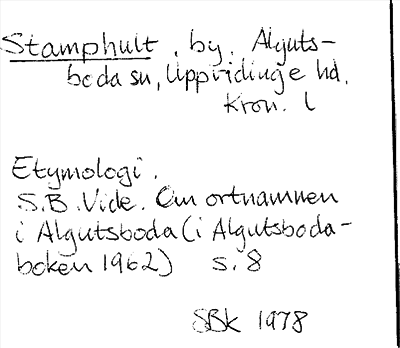 Stamphult, by, Alguts-
boda sn, Uppvidinge hd,
Kron. l
Etymologi.
S.B. Vide. Om ortnamnen
i Algutsboda (i Algutsboda-
boken 1962) s. 8
SBk 1978